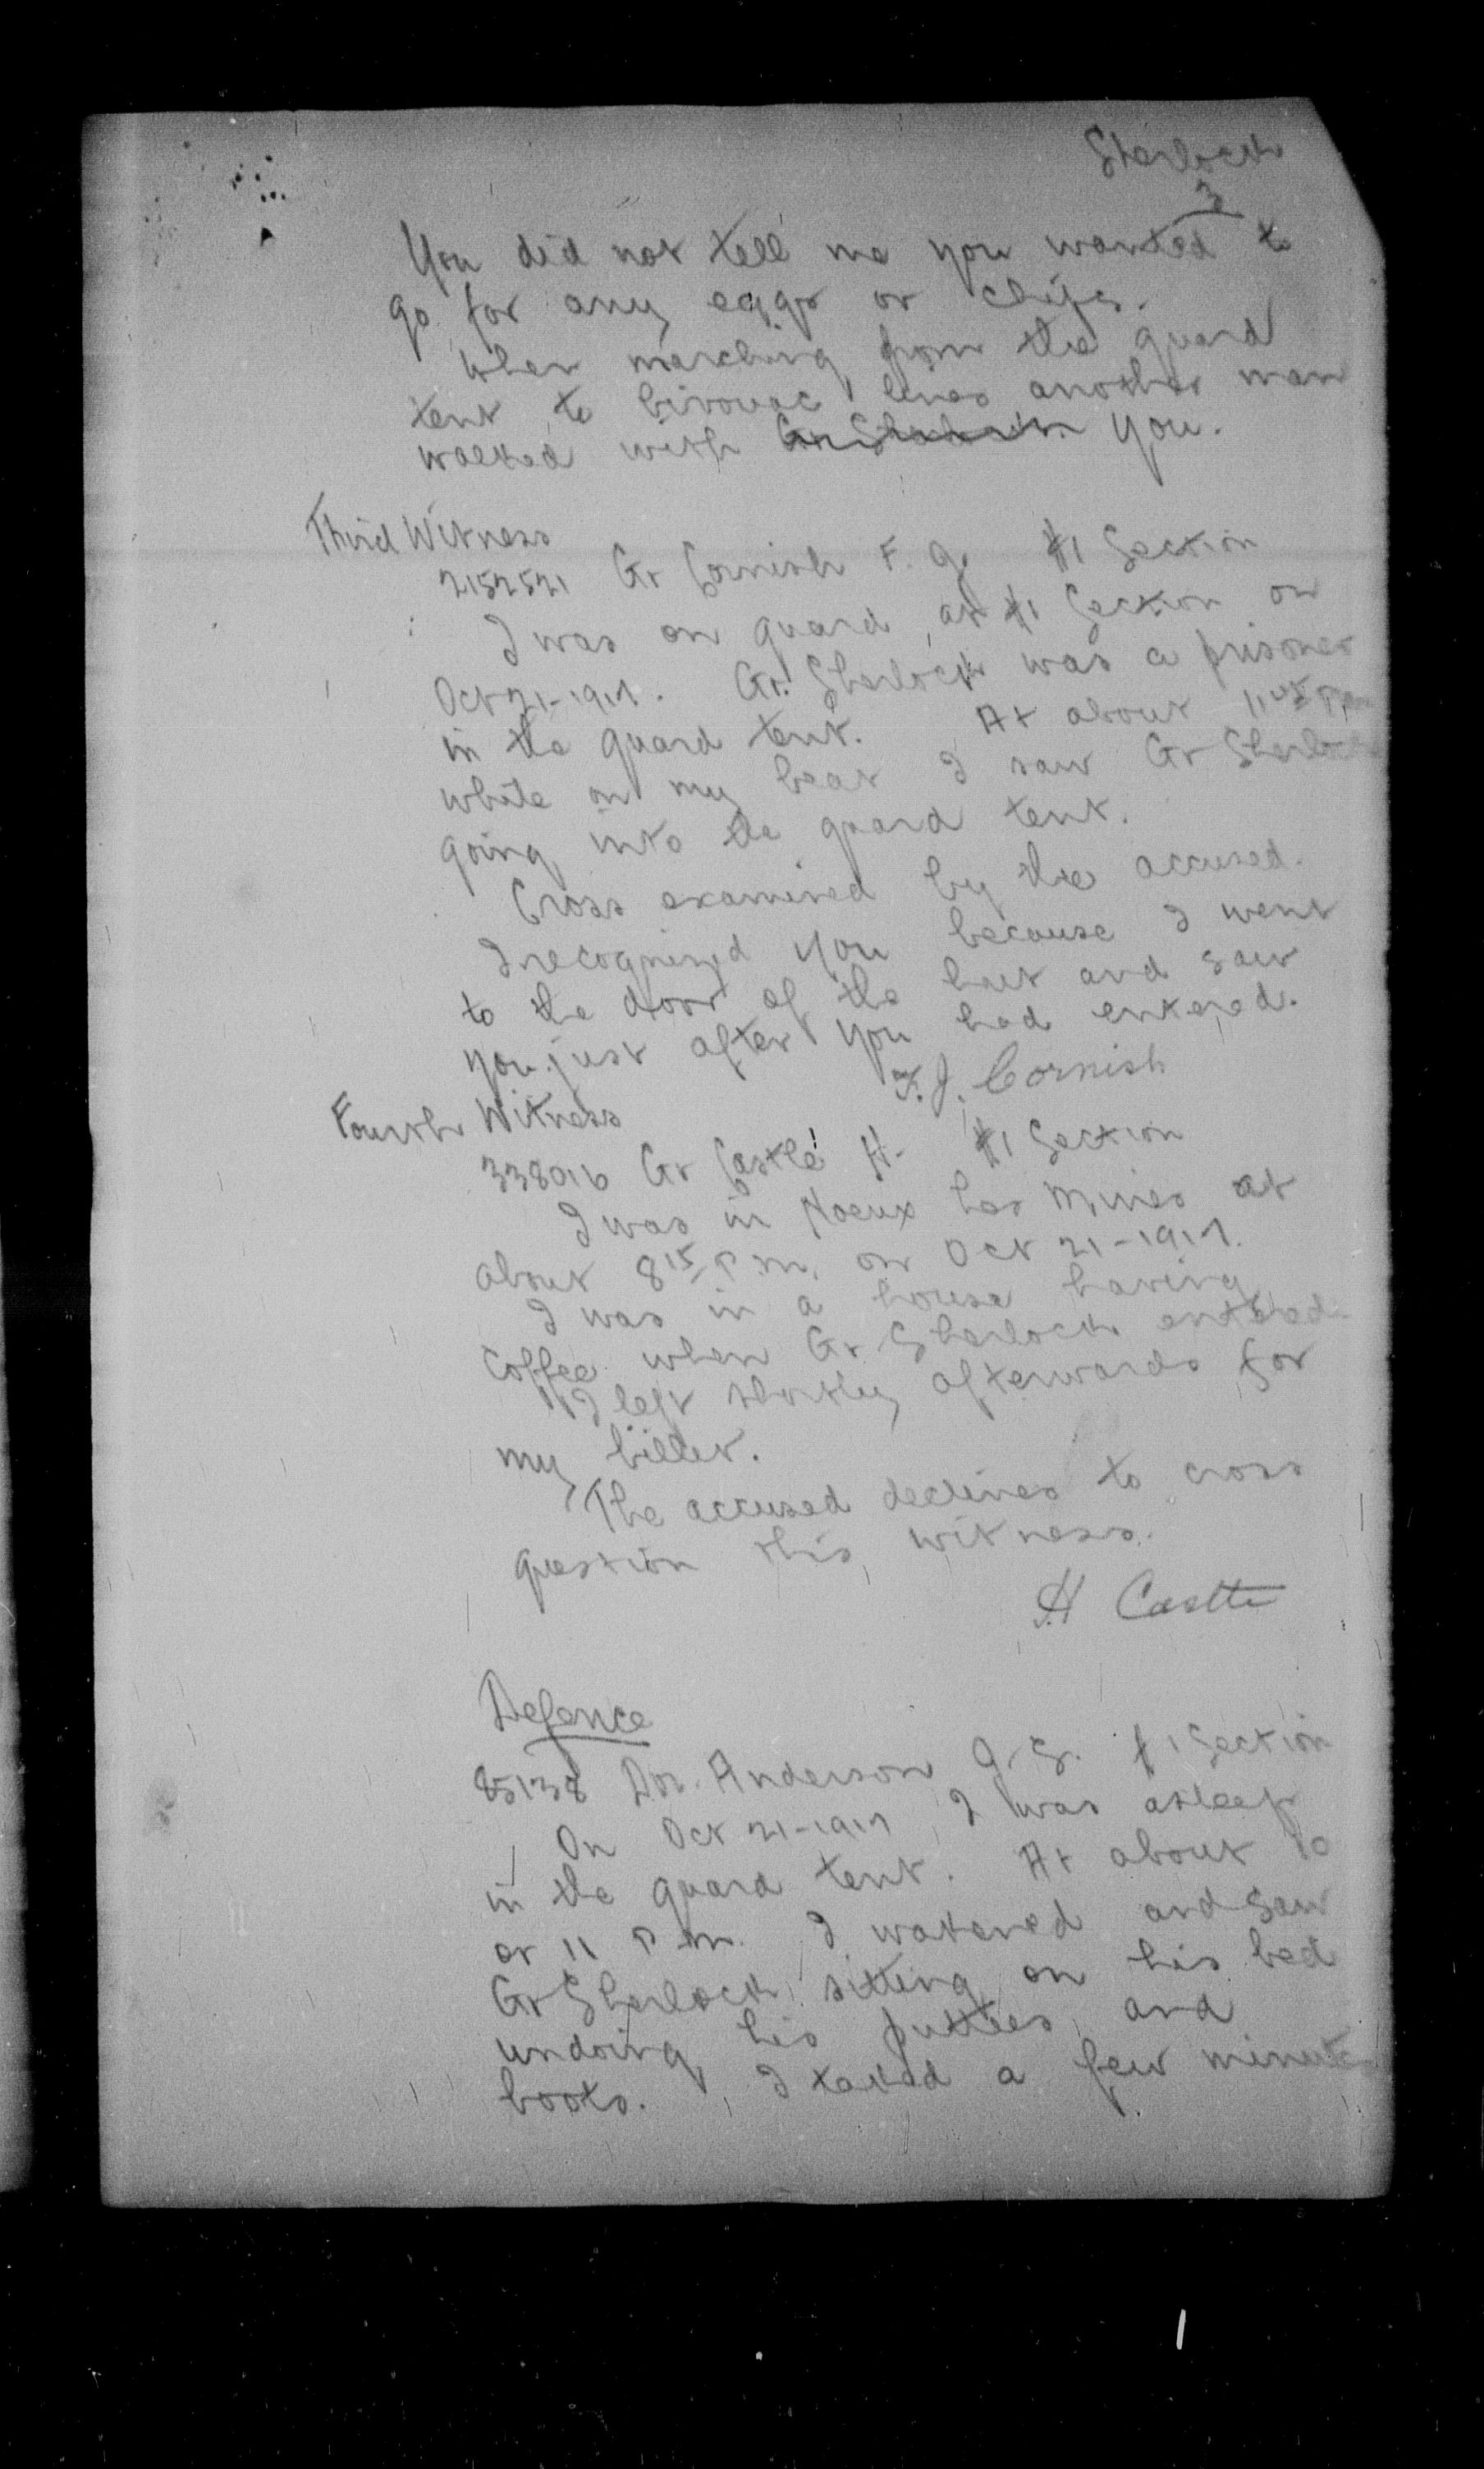 Sherlock
3
You did not tell me you wanted to
go for any eggs or chips.
When marching from the guard
tent to bivouac lines another man
walked with Gr Sherlock you.
Third Witness
2152521 Gr Cornish F. J. #1 Section
I was on guard at #1 Section on
Oct 21-1917. Gr. Sherlock was a prisoner
in the guard tent. At about 11 45 P.m
while on my beat I saw Gr Sherlock
going into the guard tent.
Cross examined by the accused.
I recognized you because I went
to the door of the hut and saw
you just after you had entered.
F. J. Cornish
Fourth Witness
338016 Gr Castle H. #1 Section
I was in Noeux Les Mines at
about 8 15 P.M. on Oct 21-1917.
I was in a house having
coffee when Gr Sherlock entered
I left shortly afterwards for
my billet.
The accused declines to cross
question this witness.
H Castle
Defence
85138 Dvr. Anderson J. S. #1 Section
On Oct 21-1917 I was asleep
in the guard tent. At about 10
or 11 P.m. I wakened and saw
Gr Sherlock sitting on his bed
undoing his puttees and
boots. I talked a few minutes